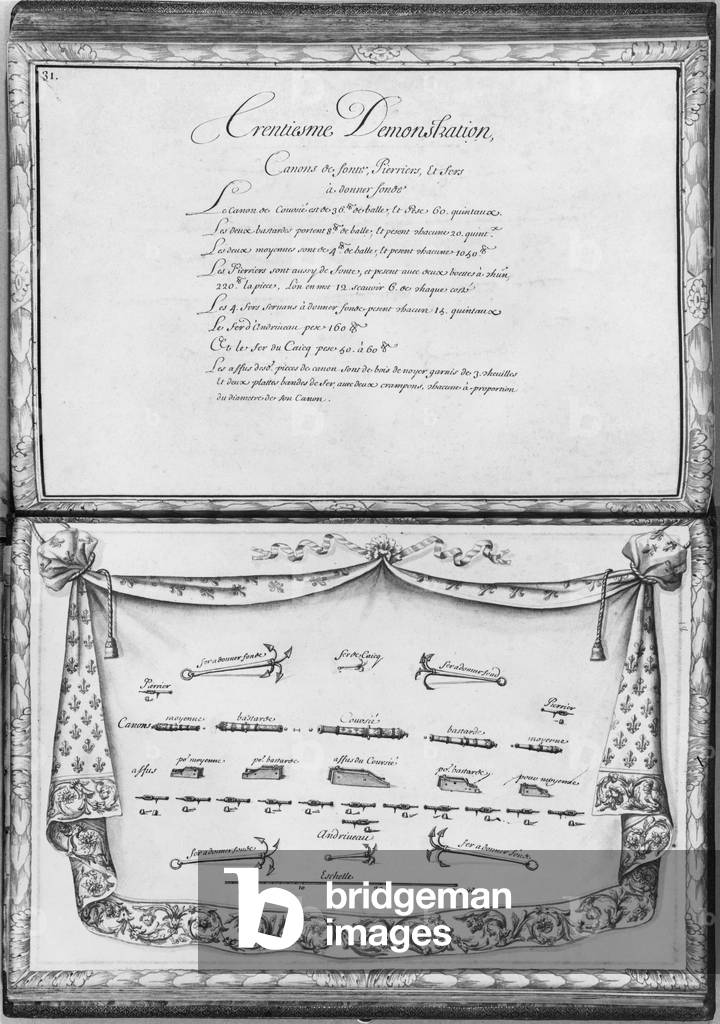 31.
Trentiesme Demonstration,
Canons de fonte, Pierriers, Et fers
à donner fonde
Le Canon de Coursié est de 36. de balle, Et Pese 60. quintaux.
Les deux bastardes portent 8 de balle, Et pesent chacune 20. quint
Les deux moyennes sont de 4 de balle, Et pesent chacune 1050
Les Pierriers sont aussy de fonte, et pesent avec deux boettes à chũn,
220 la piece, L'on en met 12 scavoir 6. de chaque costé
Les 4. fers servans à donner fonde pesent chacun 15. quintaux
Le fer d'Andriveau pese 160
Et le fer du Caicq pese 50. à 60
Les affus desd. pieces de canon sont de bois de noyer garnis de 3. cheuilles
Et deux plattes bandes de fer, avec deux crampons, chacune à proportion
du diametre de son Canon.
fer a donner fonde
fer de Caicq
fer a donner fond
Pierrier
Pierrier
Canons moyenne bastarde Coursié bastarde moyenne
affus po. moyenne po. bastarde affus du Coursié po. bastarde pour moyenne
Andriveau
fer a donner fonde
fer a donner fonde
Eschelle
b bridgeman
images